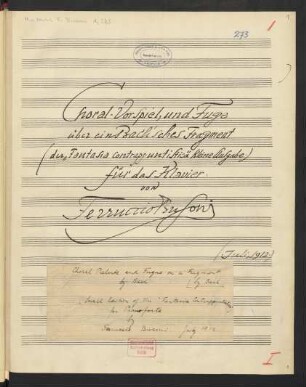 273
Choral-Vorspiel und Fuge
über ein Bachsches Fragment
(der Fantasia contrappuntistica kleine Ausgabe)
für das Klavier
von
Ferruccio Busoni
(Juli 1912)
Choral Prelude and Fugue on a Fragment
by Bach
Small Edition of the "Fantasia Contrappuntistica"
for Pianoforte
by
Ferruccio Busoni July 1912
I